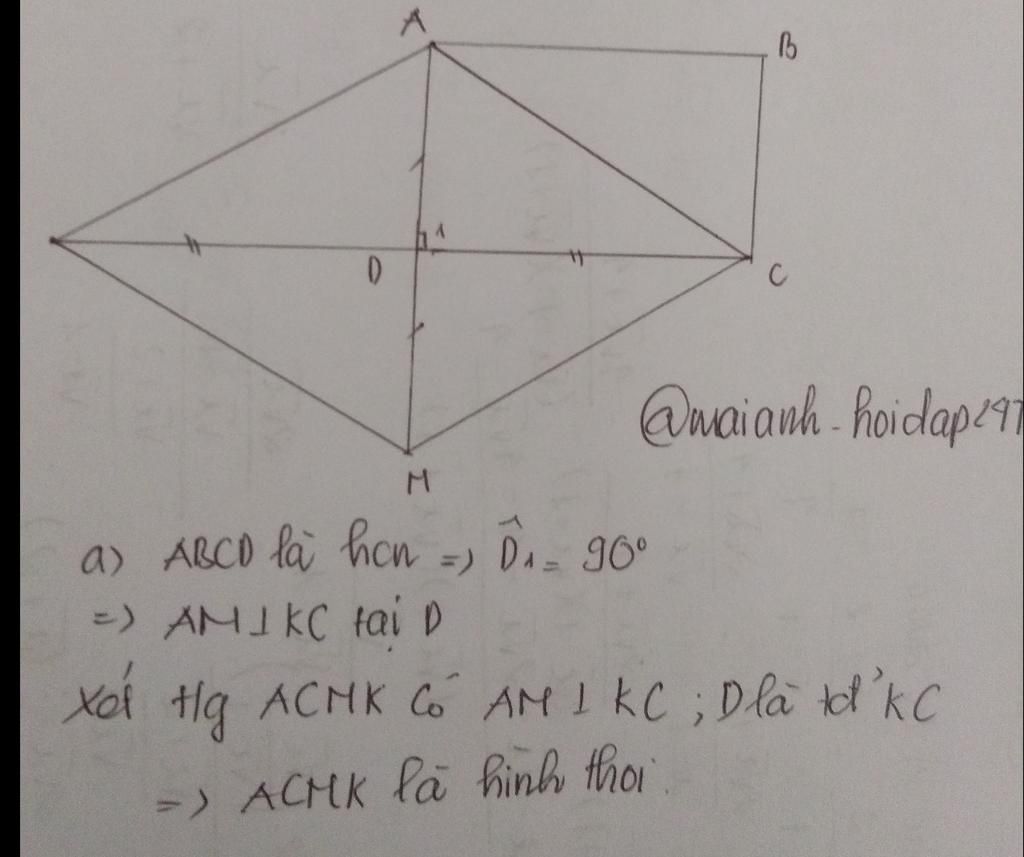 A
B
1
D
C
@maianh_hoidap297
M
a) ABCD là hcn => D̂1 = 90°
=> AM ⊥ KC tại D
Xét t/g ACMK có AM ⊥ KC ; D là tđ' KC
=> ACMK là hình thoi.